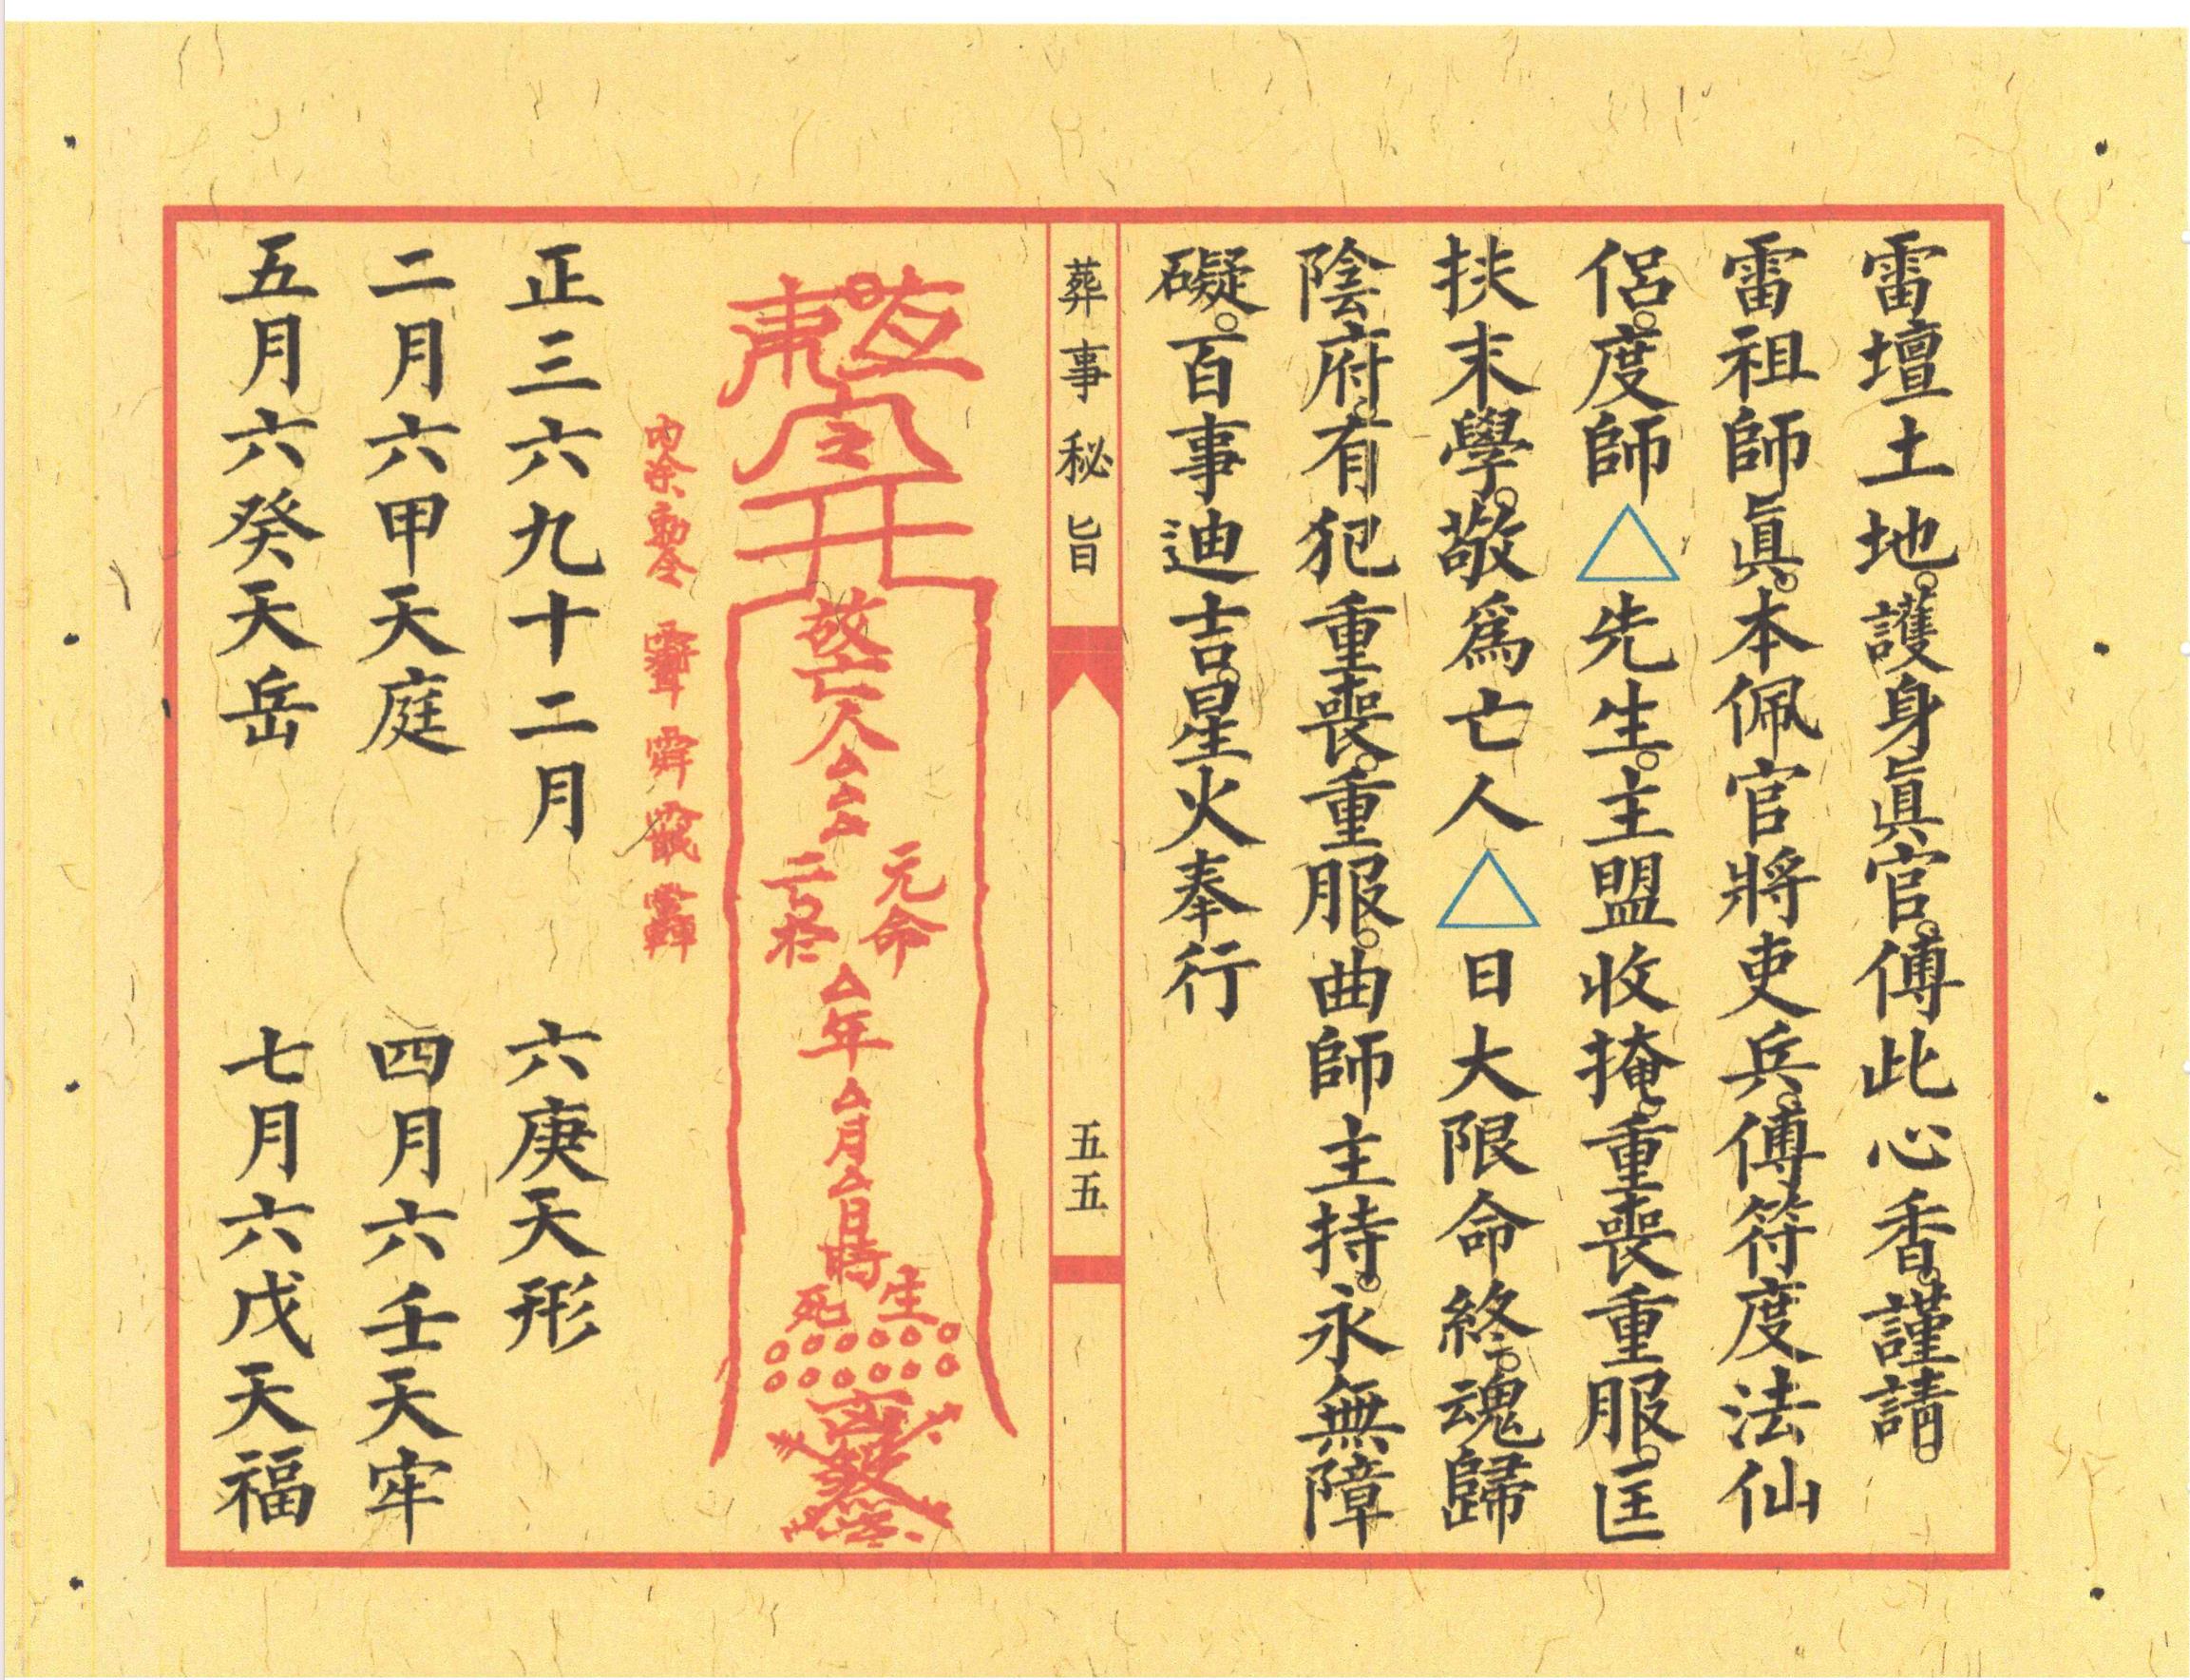 雷壇土地。護身眞官。傅此心香。謹請。
雷祖師眞。本佩官將吏兵。傅符度法仙
侶。度師△先生。主盟收掩。重喪重服。匡
扶末學。敬爲亡人△日大限命終。魂歸
陰府。有犯重喪。重服。曲師主持。永無障
礙。百事迪吉。星火奉行
葬事秘旨
五五
故亡人
元命
年 月 日時
生
死
內涂勅令
正三六九十二月 六庚天形
二月六甲天庭 四月六壬天牢
五月六癸天岳 七月六戊天福